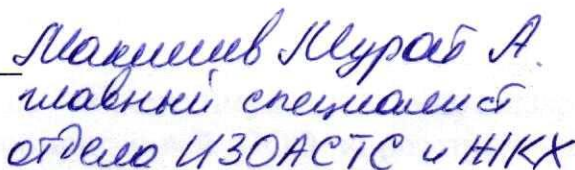 Макишев Мурат А.
главный специалист
отдела ИЗОАСТС и ЖКХ